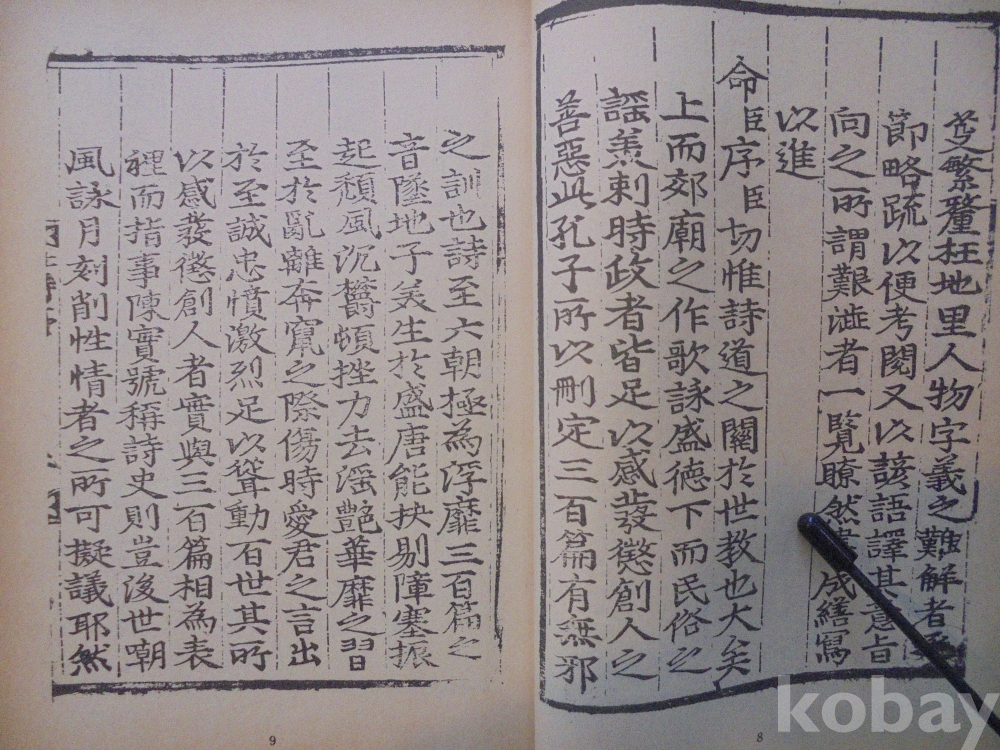 芟繁釐枉地里人物字義之難解者
節略疏以便考閱又以諺語譯其意旨
向之所謂艱澁者一覽瞭然書成繕寫
以進
命臣序臣切惟詩道之關於世敎也大矣
上而郊廟之作歌詠盛德下而民俗之
謠美刺時政者皆足以感發懲創人之
善惡此孔子所以刪定三百篇有無邪
8
之訓也詩至六朝極為浮靡三百篇之
音墜地子美生於盛唐能抉剔障塞振
起頹風沉欝頓挫力去滛艶華靡之習
至於亂離奔竄之際傷時愛君之言出
於至誠忠憤激烈足以聳動百世其所
以感發懲創人者實與三百篇相為表
裡而指事陳實號稱詩史則豈後世嘲
風詠月刻削性情者之所可擬議耶然
9
kobay